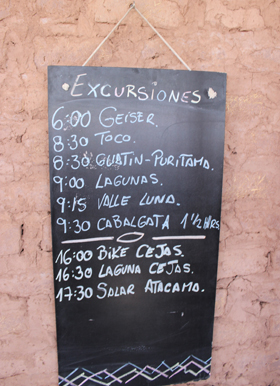 EXCURSIONES
6:00 GEISER.
8:30 TOCO.
8:30 GUATIN-PURITAMA.
9:00 LAGUNAS.
9:15 VALLE LUNA.
9:30 CABALGATA 1 1/2 HRS.
16:00 BIKE CEJAS.
16:30 LAGUNA CEJAS.
17:30 SALAR ATACAMA.